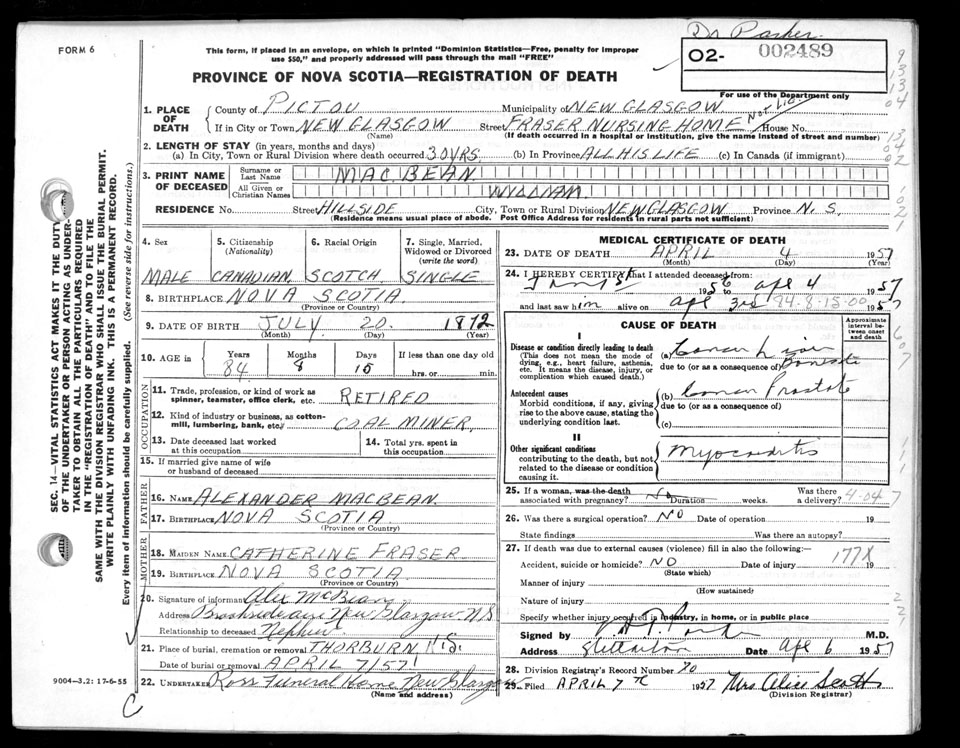 Dr Parker
FORM 6
This form, if placed in an envelope, on which is printed "Dominion Statistics—Free, penalty for improper
use $50," and properly addressed will pass through the mail "FREE"
O2- 002489
PROVINCE OF NOVA SCOTIA—REGISTRATION OF DEATH
For use of the Department only
1. PLACE OF DEATH
County of PICTOU Municipality of NEW GLASGOW
If in City or Town NEW GLASGOW Street FRASER NURSING HOME House No.
(Name) (If death occurred in a hospital or Institution, give the name instead of street and number)
2. LENGTH OF STAY (in years, months and days)
(a) In City, Town or Rural Division where death occurred 30 YRS. (b) In Province ALL HIS LIFE (c) In Canada (if immigrant)
3. PRINT NAME OF DECEASED
Surname or Last Name MAC BEAN
All Given or Christian Names WILLIAM
RESIDENCE No. Street HILLSIDE City, Town or Rural Division NEW GLASGOW Province N.S.
(Residence means usual place of abode. Post Office Address for residents in rural parts not sufficient)
SEC. 14—VITAL STATISTICS ACT MAKES IT THE DUTY
OF THE UNDERTAKER OR PERSON ACTING AS UNDER-
TAKER TO OBTAIN ALL THE PARTICULARS REQUIRED
IN THE "REGISTRATION OF DEATH" AND TO FILE THE
SAME WITH THE DIVISION REGISTRAR WHO SHALL ISSUE THE BURIAL PERMIT.
WRITE PLAINLY WITH UNFADING INK. THIS IS A PERMANENT RECORD.
Every item of information should be carefully supplied. (See reverse side for instructions.)
4. Sex 5. Citizenship (Nationality) 6. Racial Origin 7. Single, Married, Widowed or Divorced (write the word)
MALE CANADIAN SCOTCH SINGLE
8. BIRTHPLACE NOVA SCOTIA
(Province or Country)
9. DATE OF BIRTH JULY 20 1872
(Month) (Day) (Year)
10. AGE in Years Months Days If less than one day old
84 8 15 hrs. or min.
OCCUPATION
11. Trade, profession, or kind of work as
spinner, teamster, office clerk, etc. RETIRED
12. Kind of industry or business, as cotton-
mill, lumbering, bank, etc. COAL MINER
13. Date deceased last worked at this occupation
14. Total yrs. spent in this occupation
15. If married give name of wife
or husband of deceased
FATHER
16. NAME ALEXANDER MACBEAN
17. BIRTHPLACE NOVA SCOTIA
(Province or Country)
MOTHER
18. MAIDEN NAME CATHERINE FRASER
19. BIRTHPLACE NOVA SCOTIA
(Province or Country)
20. Signature of informant Alex McBean
Address Brookside Ave New Glasgow N.S
Relationship to deceased Nephew
21. Place of burial, cremation or removal THORBURN N.S.
Date of burial or removal APRIL 7/57
22. UNDERTAKER Ross Funeral Home New Glasgow
(Name and address)
9004—3.2: 17-6-55
MEDICAL CERTIFICATE OF DEATH
23. DATE OF DEATH APRIL 4 1957
(Month) (Day) (Year)
24. I HEREBY CERTIFY that I attended deceased from:
1956 Apl 4 1957
and last saw him alive on Apl 3rd 84-8-15-00 1957
CAUSE OF DEATH
Approximate interval between onset and death
I
Disease or condition directly leading to death
(This does not mean the mode of
dying, e.g., heart failure, asthenia,
etc. It means the disease, injury, or
complication which caused death.)
(a)
due to (or as a consequence of)
Antecedent causes
Morbid conditions, if any, giving
rise to the above cause, stating the
underlying condition last.
(b) Prostate
due to (or as a consequence of)
(c)
II
Other significant conditions
contributing to the death, but not
related to the disease or condition
causing it.
Myocarditis
25. If a woman, was the death associated with pregnancy? No Duration weeks. Was there a delivery? 4-04
26. Was there a surgical operation? NO Date of operation 19
State findings Was there an autopsy?
27. If death was due to external causes (violence) fill in also the following:—
Accident, suicide or homicide? NO Date of injury 177X 19
(State which)
Manner of injury
(How sustained)
Nature of injury
Specify whether injury occurred in industry, in home, or in public place
Signed by M.D.
Address Stellarton Date Apl 6 1957
28. Division Registrar's Record Number 70
29. Filed APRIL 7th 1957 Mrs Alice Scott
(Division Registrar)